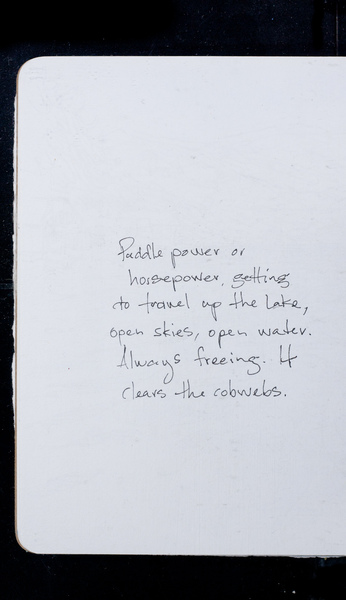 Paddle power or
horsepower, getting
to travel up the Lake,
open skies, open water.
Always freeing. It
clears the cobwebs.